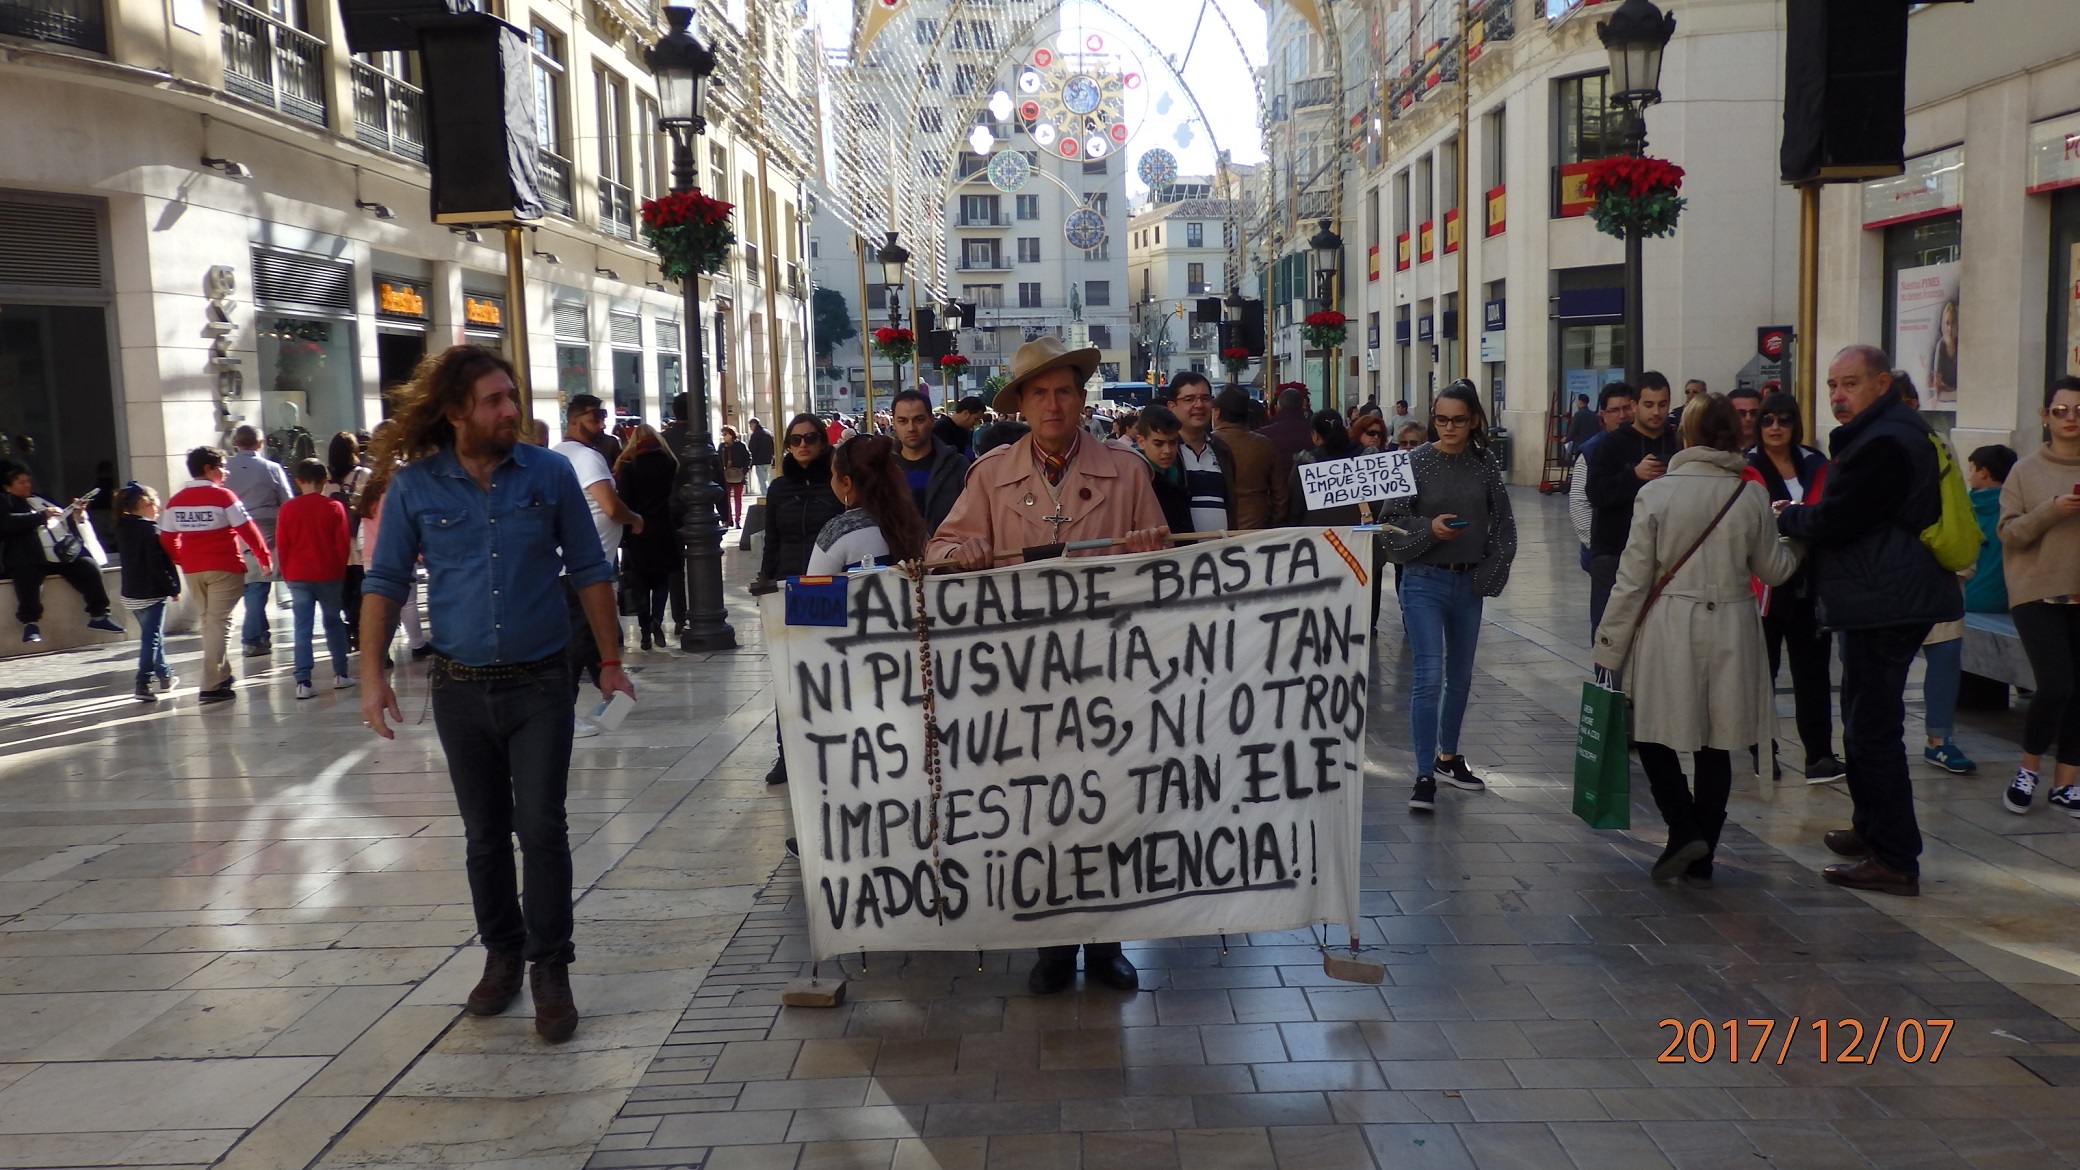 ALCALDE DE
IMPUESTOS
ABUSIVOS
AYUDA
ALCALDE BASTA
NI PLUSVALÍA, NI TAN-
TAS MULTAS, NI OTROS
IMPUESTOS TAN ELE-
VADOS ¡¡CLEMENCIA!!
FRANCE
BBVA
2017/12/07